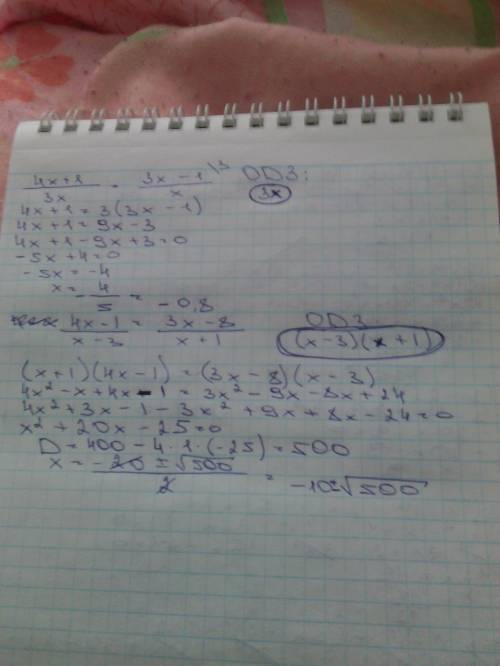 (4x+1)/(3x) = (3x-1)/x \3 ОДЗ:
3x
4x+1=3(3x-1)
4x+1=9x-3
4x+1-9x+3=0
-5x+4=0
-5x=-4
x=-4/5=-0,8
(4x-1)/(x-3) = (3x-8)/(x+1) ОДЗ
(x-3)(x+1)
(x+1)(4x-1)=(3x-8)(x-3)
4x²-x+4x-1=3x²-9x-8x+24
4x²+3x-1-3x²+9x+8x-24=0
x²+20x-25=0
D=400-4·1·(-25)=500
x=(-20±√500)/2=-10±√500